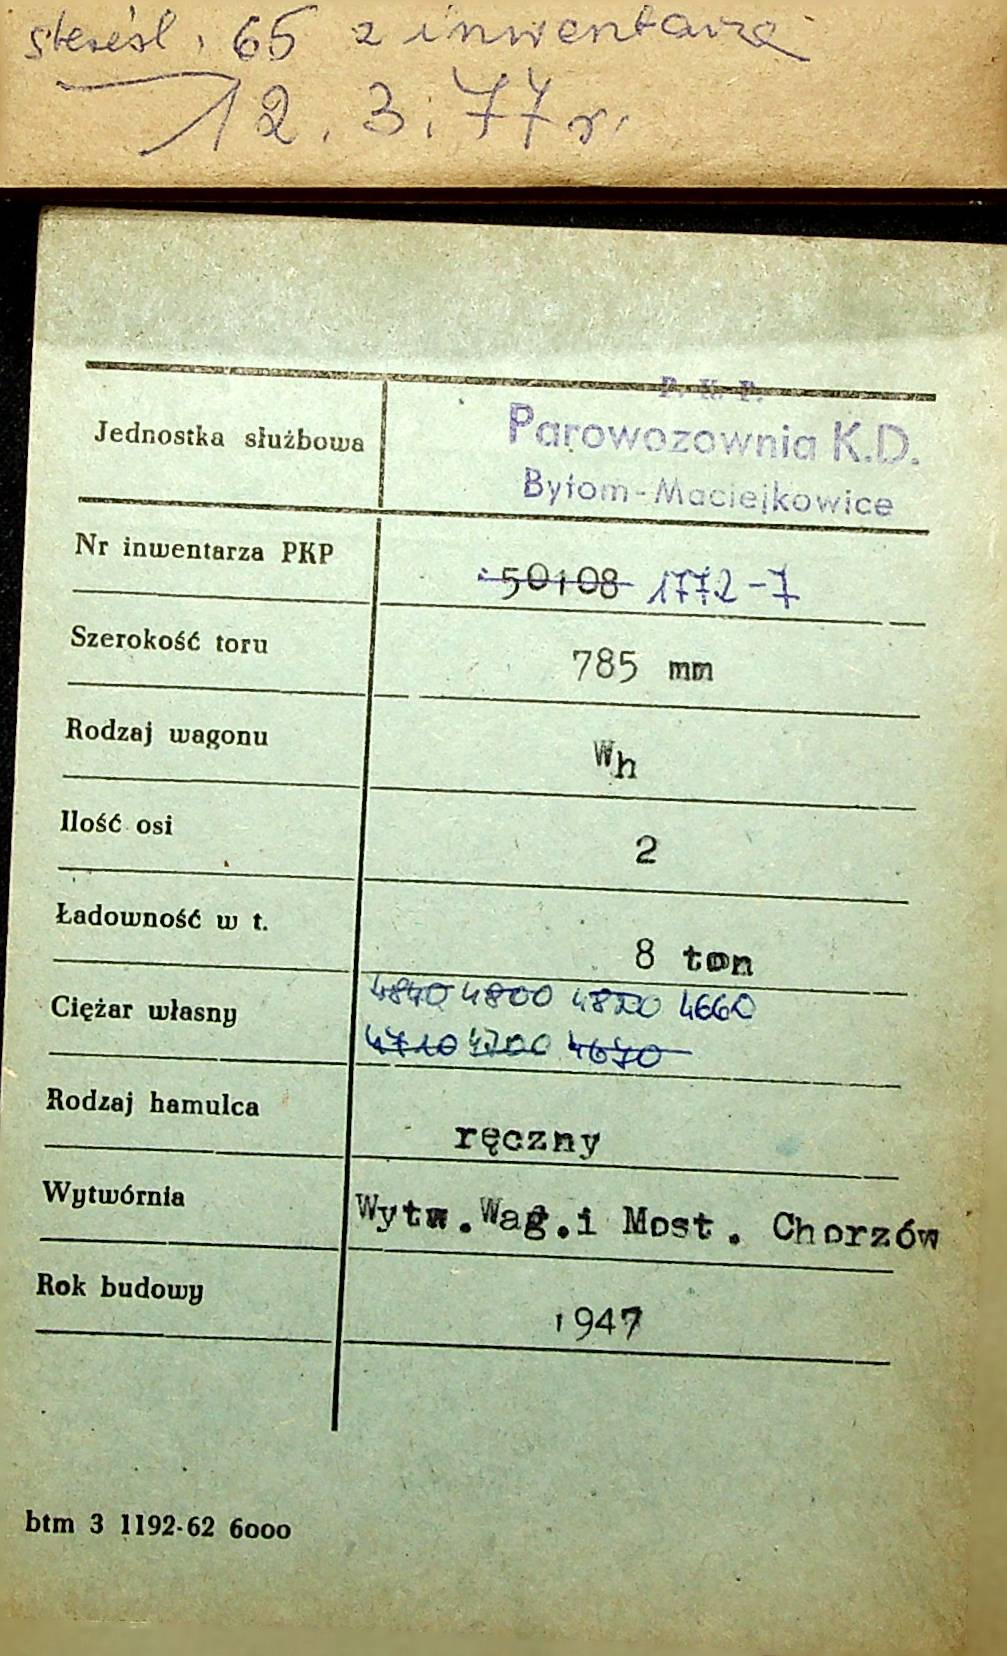 skreśl. 65 z inwentarza
12.3.77 r.
P. K. P.
Jednostka służbowa Parowozownia K.D.
Bytom-Maciejkowice
Nr inwentarza PKP 50108 1772-7
Szerokość toru 785 mm
Rodzaj wagonu Wh
Ilość osi 2
Ładowność w t. 8 ton
Ciężar własny 4840 4800 4820 4660
4710 4700 4670
Rodzaj hamulca ręczny
Wytwórnia Wytw.Wag.i Most. Chorzów
Rok budowy 1947
btm 3 1192-62 6000